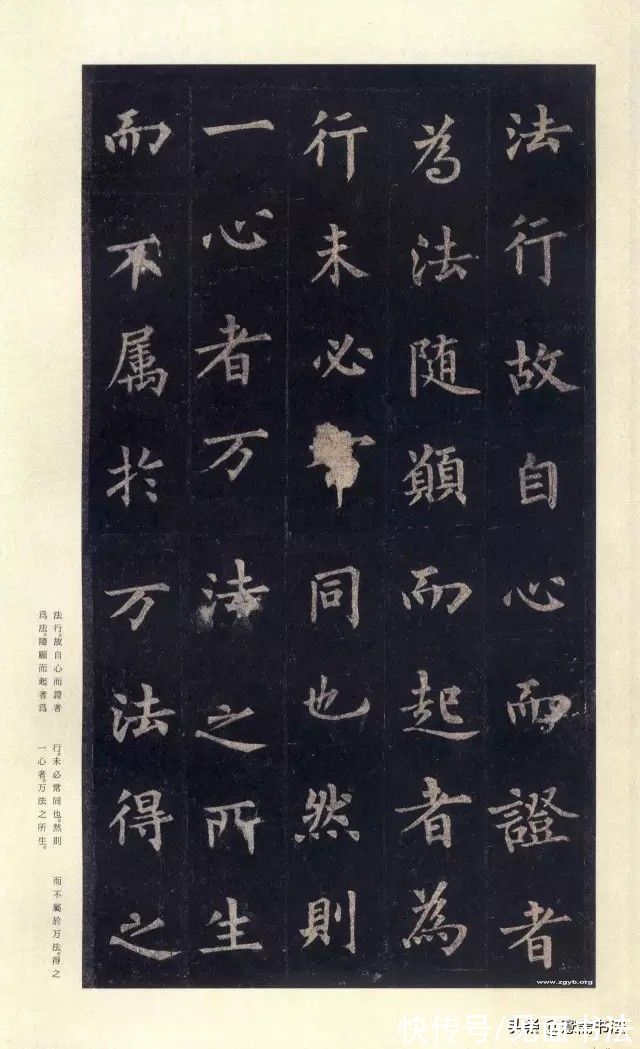 法行故自心而證者
為法随顚而起者為
行未必常同也然則
一心者万法之所生
而不属於万法得之
法行。故自心而證者
爲法。隨願而起者爲
行。未必常同也。然則
一心者。万法之所生。
而不屬於万法。得之
www.zgyb.org
快传号/
书法